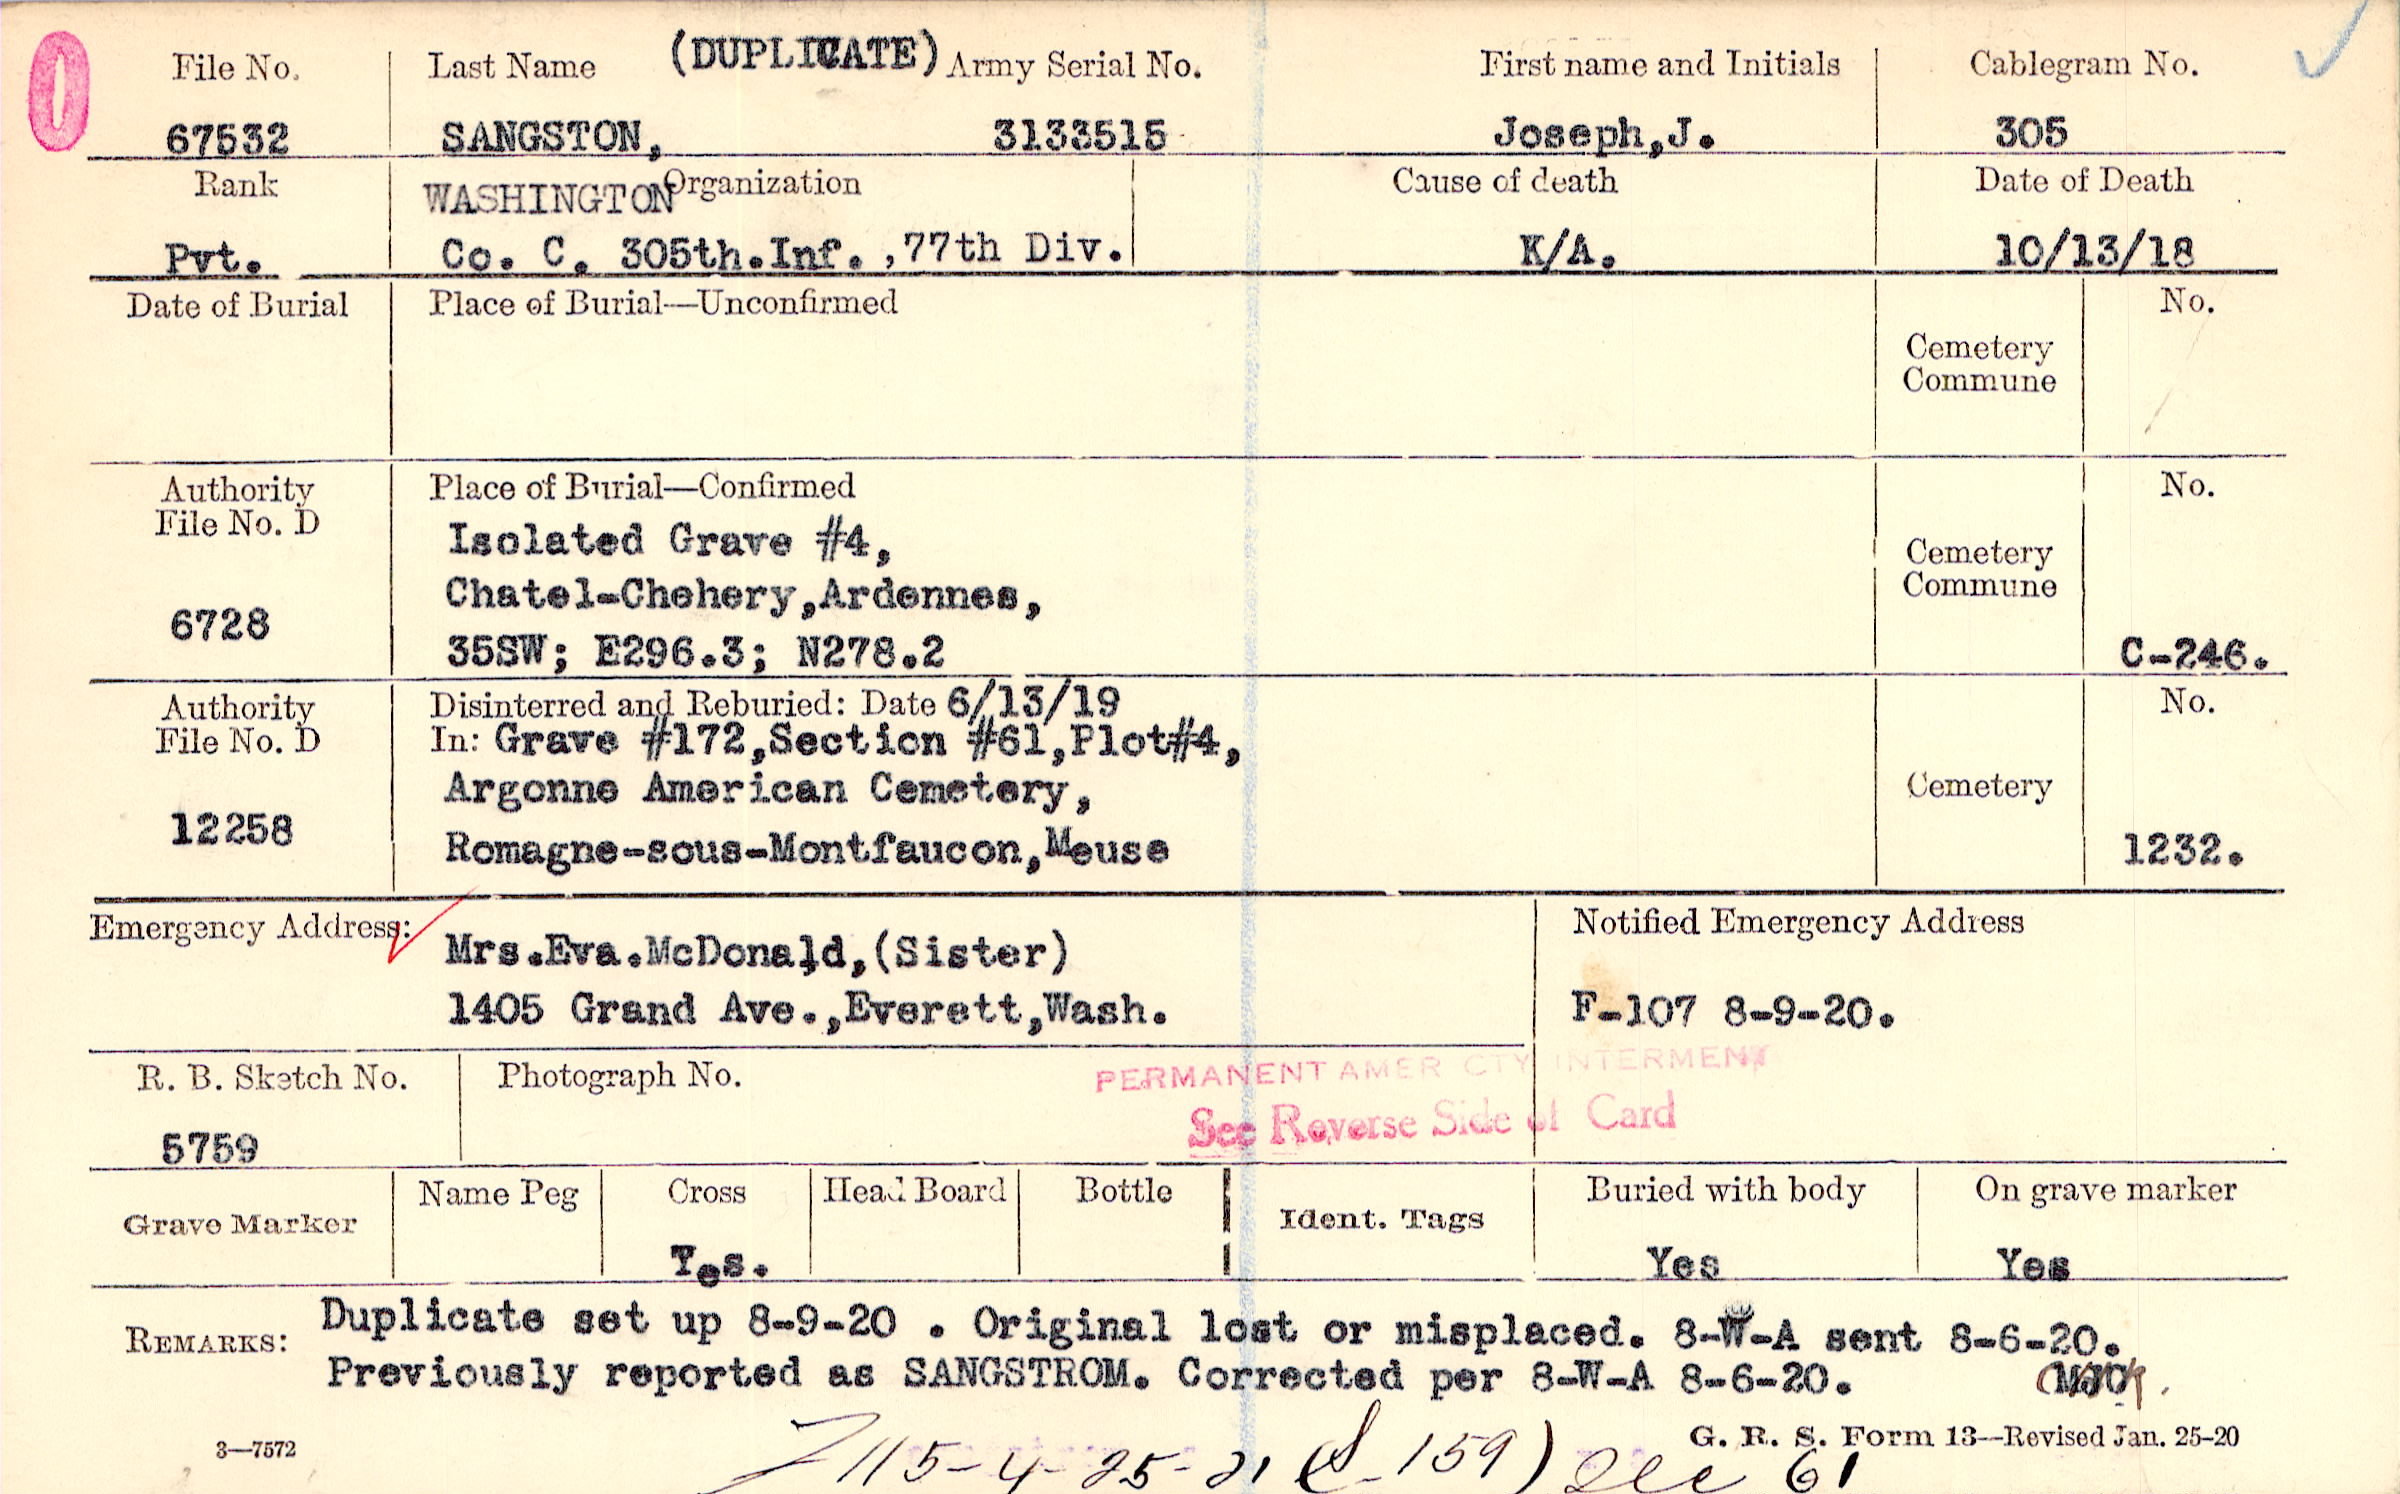 0
(DUPLICATE)
File No. Last Name Army Serial No. First name and Initials Cablegram No.
67532 SANGSTON, 3133515 Joseph,J. 305
Rank WASHINGTON Organization Cause of death Date of Death
Pvt. Co. C. 305th.Inf.,77th Div. K/A. 10/13/18
Date of Burial Place of Burial—Unconfirmed No.
Cemetery
Commune
Authority Place of Burial—Confirmed No.
File No. D
Isolated Grave #4,
Cemetery
Commune
Chatel-Chehery,Ardennes,
6728
35SW; E296.3; N278.2 C-246.
Authority Disinterred and Reburied: Date 6/13/19 No.
File No. D In: Grave #172,Section #61,Plot#4,
Argonne American Cemetery, Cemetery
12258
Romagne-sous-Montfaucon,Meuse 1232.
Emergency Address: Notified Emergency Address
Mrs.Eva.McDonald,(Sister)
1405 Grand Ave.,Everett,Wash. F-107 8-9-20.
R. B. Sketch No. Photograph No.
PERMANENT AMER CTY INTERMENT
See Reverse Side of Card
5759
Grave Marker Name Peg Cross Head Board Bottle Ident. Tags Buried with body On grave marker
Yes. Yes Yes
REMARKS: Duplicate set up 8-9-20 . Original lost or misplaced. 8-W-A sent 8-6-20.
Previously reported as SANGSTROM. Corrected per 8-W-A 8-6-20.
3—7572 G. R. S. Form 13—Revised Jan. 25-20
115-4-25-21 (S-159) Sec 61